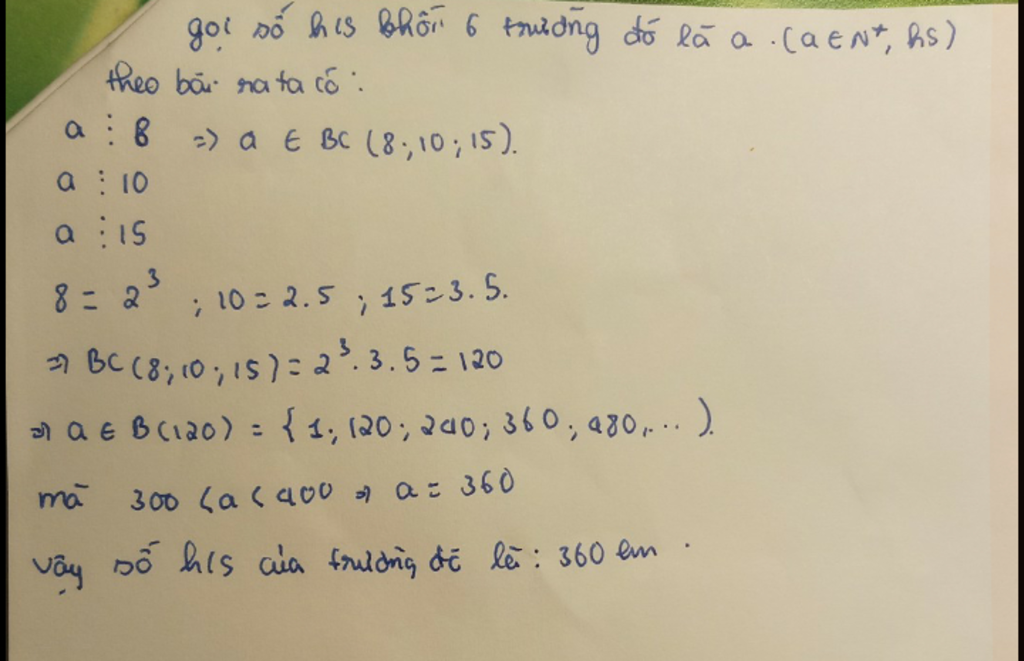 gọi số h/s khối 6 trường đó là a. (a ∈ N*, hs)
theo bài ra ta có:
a ⋮ 8 => a ∈ BC (8; 10; 15).
a ⋮ 10
a ⋮ 15
8 = 2³ ; 10 = 2.5 ; 15 = 3.5.
=> BC (8; 10; 15) = 2³.3.5 = 120
=> a ∈ B(120) = { 1; 120; 240; 360; 480,... }.
mà 300 < a < 400 => a = 360
vậy số h/s của trường đó là: 360 em.